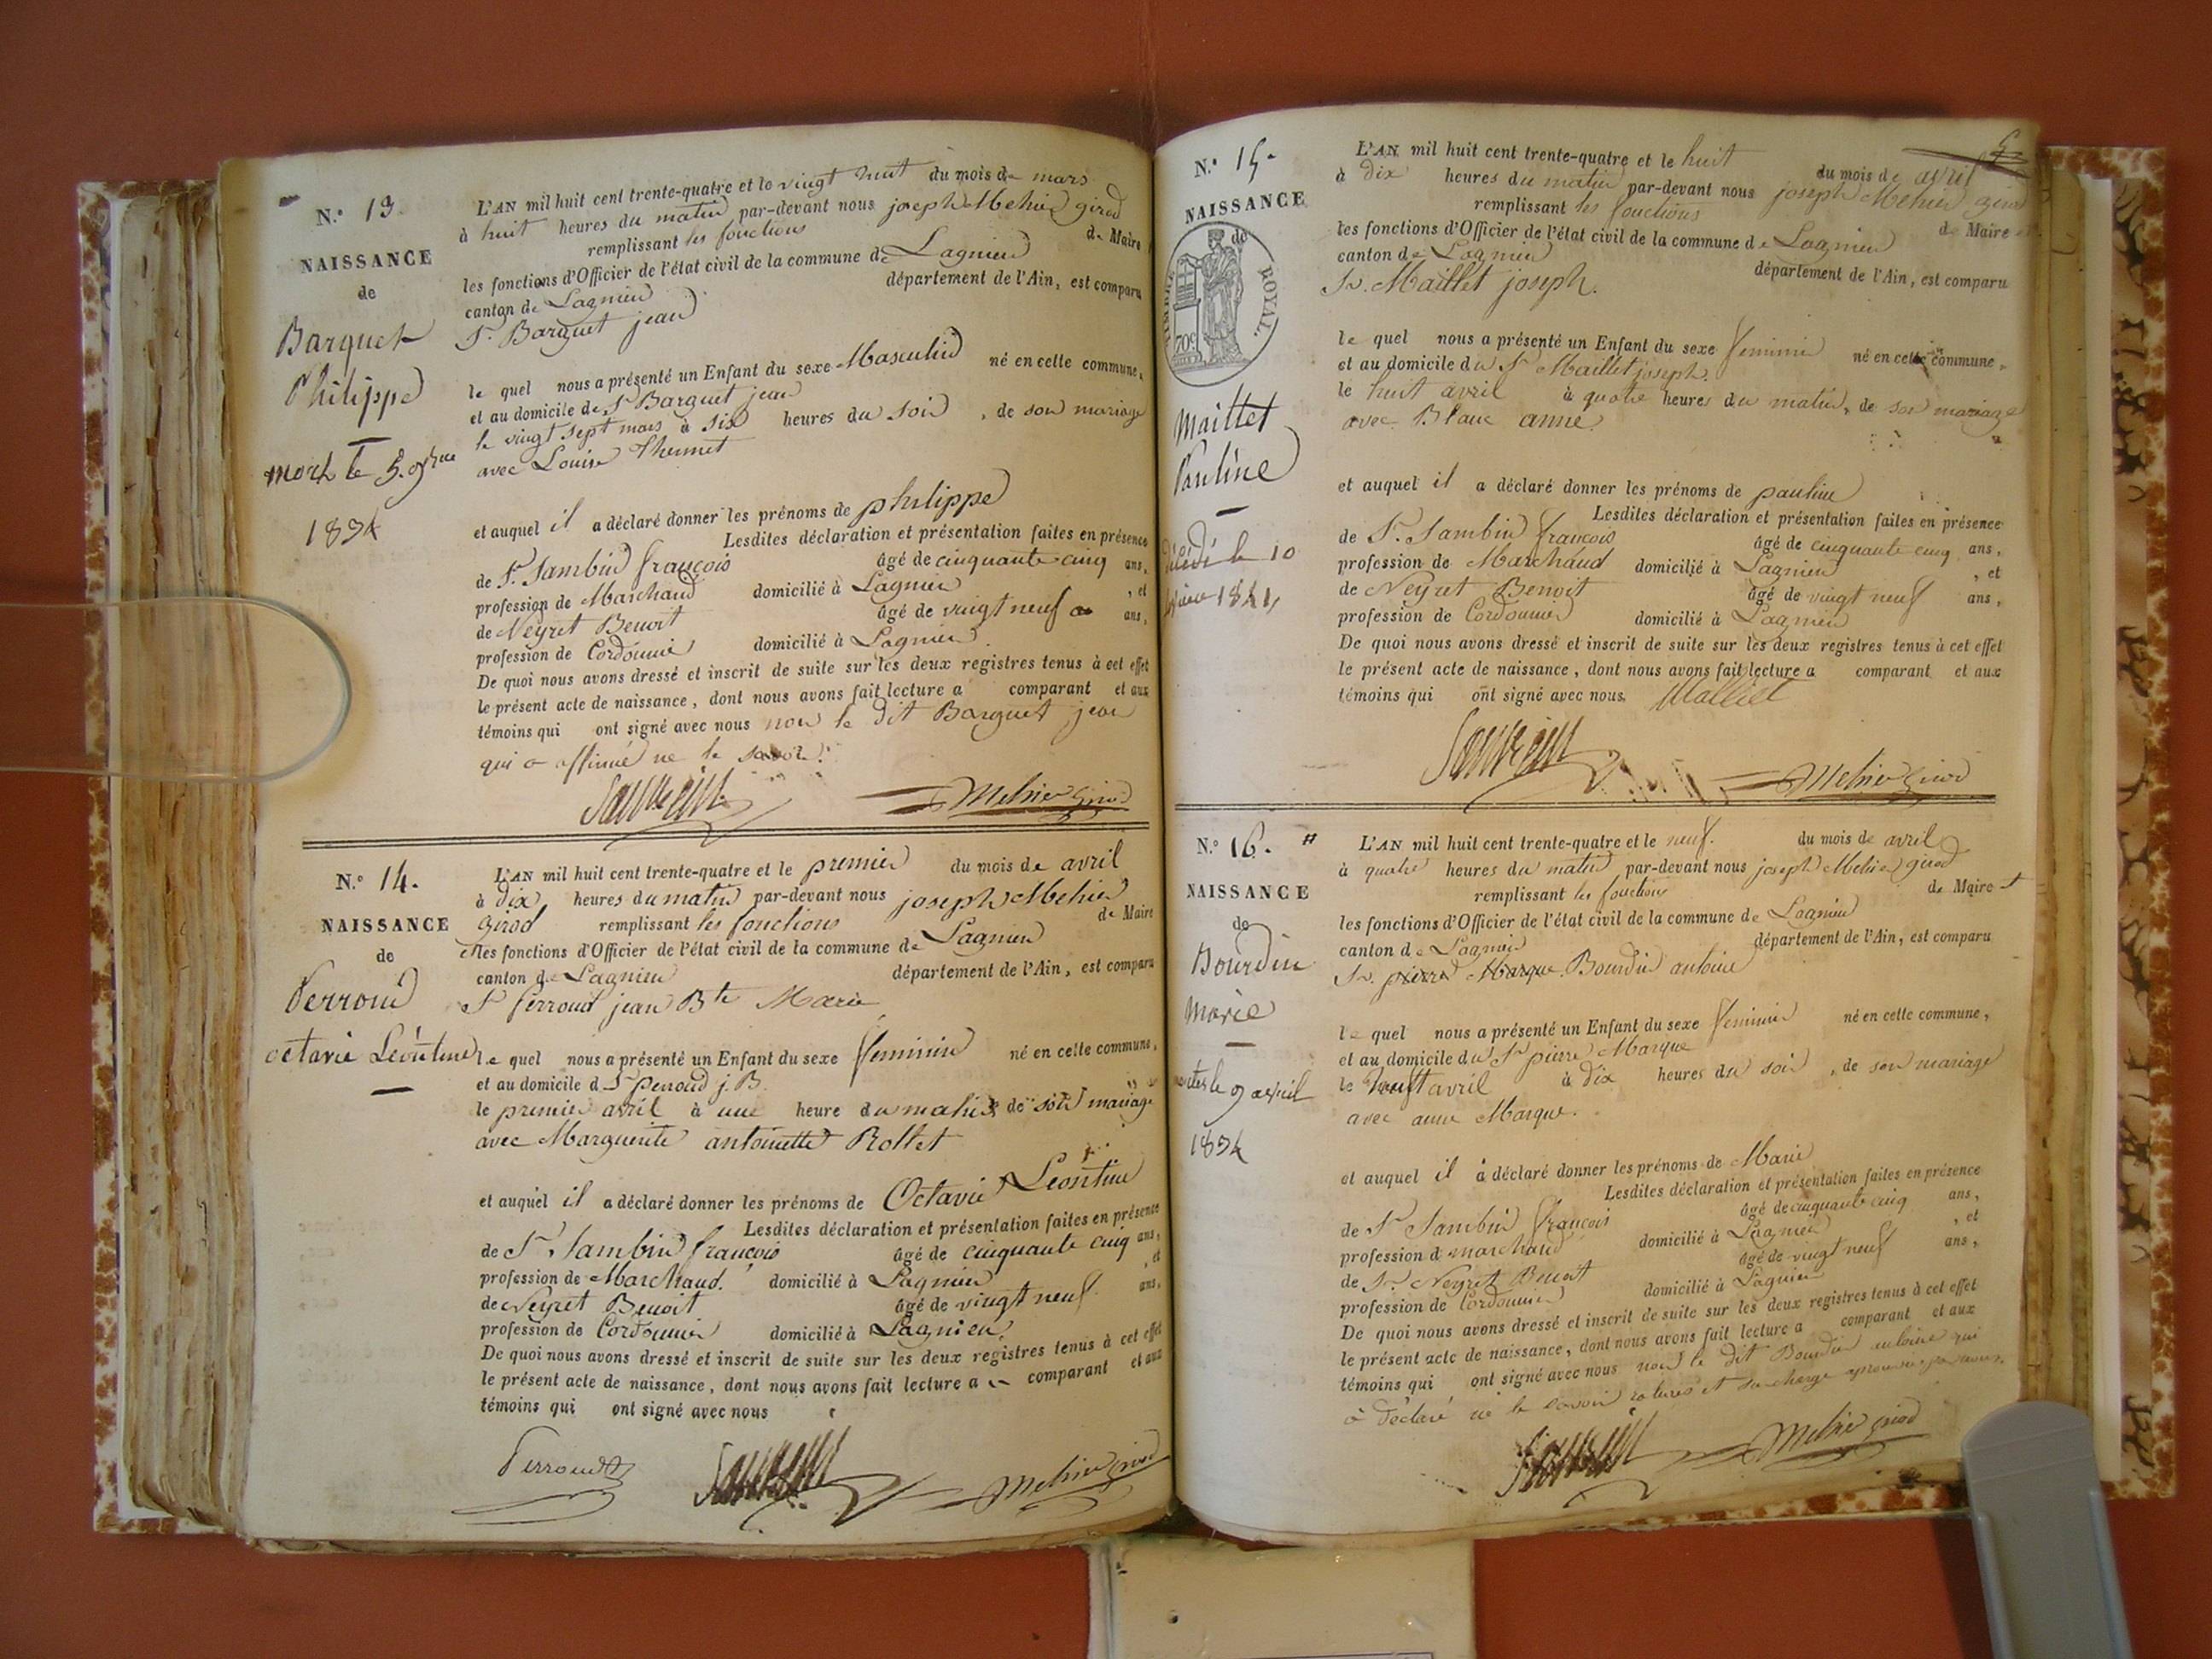 N.° 13
NAISSANCE
de
Barquet
Philippe
mort le 5. 9bre
1834
L'AN mil huit cent trente-quatre et le vingt huit du mois de mars
à huit heures du matin par-devant nous joseph Mehier girod
remplissant les fonctions de Maire
les fonctions d'Officier de l'état civil de la commune de Lagnieu
canton de Lagnieu département de l'Ain, est comparu
Sr. Barquet jean
le quel nous a présenté un Enfant du sexe Masculin né en cette commune,
et au domicile de Sr Barquet jean
le vingt sept mars à six heures du soir, de son mariage
avec Louise thermet
et auquel il a déclaré donner les prénoms de philippe
Lesdites déclaration et présentation faites en présence
de Sr. Sambin françois âgé de cinquante cinq ans,
profession de Marchand domicilié à Lagnieu, et
de Neyret Benoit âgé de vingt neuf ans,
profession de Cordonnier domicilié à Lagnieu
De quoi nous avons dressé et inscrit de suite sur les deux registres tenus à cet effet
le présent acte de naissance, dont nous avons fait lecture a comparant et aux
témoins qui ont signé avec nous non le dit Barquet jean
qui a affirmé ne le savoir.
Mehier Girod
N.° 14.
NAISSANCE
de
Perroud
octavie Léontine
L'AN mil huit cent trente-quatre et le premier du mois de avril
à dix heures du matin par-devant nous joseph Mehier
girod remplissant les fonctions de Maire
les fonctions d'Officier de l'état civil de la commune de Lagnieu
canton de Lagnieu département de l'Ain, est comparu
Sr Perroud jean Bte Marie
le quel nous a présenté un Enfant du sexe feminin né en cette commune,
et au domicile d Sr Perroud j. B.
le premier avril à une heure du matin de son mariage
avec Marguerite antoinette Rollet
et auquel il a déclaré donner les prénoms de Octavie Léontine
Lesdites déclaration et présentation faites en présence
de Sr Sambin françois âgé de cinquante cinq ans,
profession de Marchand. domicilié à Lagnieu, et
de Neyret Benoit âgé de vingt neuf. ans,
profession de Cordonnier domicilié à Lagnieu.
De quoi nous avons dressé et inscrit de suite sur les deux registres tenus à cet effet
le présent acte de naissance, dont nous avons fait lecture a comparant et aux
témoins qui ont signé avec nous
Perroud Mehier Girod
5
N.° 15.
NAISSANCE
de
TIMBRE ROYAL.
70c
Maillet
Pauline
décédé le 10
1841
L'AN mil huit cent trente-quatre et le huit du mois de avril
à dix heures du matin par-devant nous joseph Mehier girod
remplissant les fonctions de Maire
les fonctions d'Officier de l'état civil de la commune de Lagnieu
canton de Lagnieu département de l'Ain, est comparu
Sr. Maillet joseph.
le quel nous a présenté un Enfant du sexe feminin né en cette commune,
et au domicile du Sr Maillet joseph.
le huit avril à quatre heures du matin, de son mariage
avec Blanc anne.
et auquel il a déclaré donner les prénoms de pauline
Lesdites déclaration et présentation faites en présence
de Sr. Sambin françois âgé de cinquante cinq ans,
profession de Marchand domicilié à Lagnieu, et
de Neyret Benoit âgé de vingt neuf ans,
profession de Cordonnier domicilié à Lagnieu
De quoi nous avons dressé et inscrit de suite sur les deux registres tenus à cet effet
le présent acte de naissance, dont nous avons fait lecture a comparant et aux
témoins qui ont signé avec nous. Maillet
Mehier Girod
N.° 16.
NAISSANCE
de
Bourdin
Marie
le 9 avril
1834
L'AN mil huit cent trente-quatre et le neuf. du mois de avril
à quatre heures du matin par-devant nous joseph Mehier girod
remplissant les fonctions de Maire
les fonctions d'Officier de l'état civil de la commune de Lagnieu
canton de Lagnieu département de l'Ain, est comparu
Sr. pierre Marque. Bourdin antoine
le quel nous a présenté un Enfant du sexe feminin né en cette commune,
et au domicile du Sr pierre Marque
le avril à dix heures du soir, de son mariage
avec anne Marque.
et auquel il a déclaré donner les prénoms de Marie
Lesdites déclaration et présentation faites en présence
de Sr Sambin françois âgé de cinquante cinq ans,
profession d marchand domicilié à Lagnieu, et
de Sr. Neyret Benoit âgé de vingt neuf ans,
profession de Cordonnier domicilié à Lagnieu
De quoi nous avons dressé et inscrit de suite sur les deux registres tenus à cet effet
le présent acte de naissance, dont nous avons fait lecture a comparant et aux
témoins qui ont signé avec nous non le dit Bourdin antoine qui
a déclaré ne le savoir ratures et surcharge
Mehier Girod